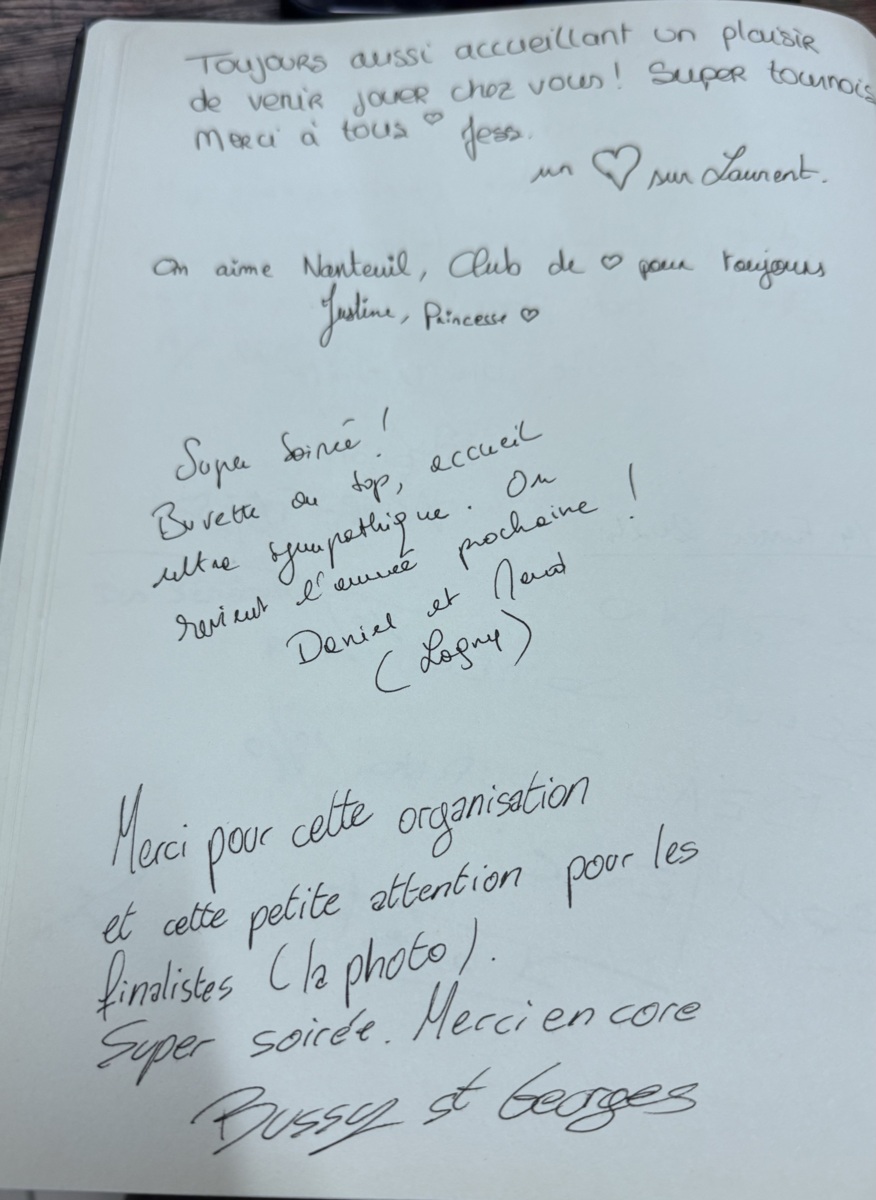 Toujours aussi accueillant un plaisir
de venir jouer chez vous! Super tournois
Merci à tous ♡ Jess.
un ♡ sur Laurent.
On aime Nanteuil, Club de ♡ pour toujours
Justine, Princesse ♡
Super Soirée !
Buvette au top, accueil
ultra sympathique. On
revient l'année prochaine !
Daniel et
(Lagny)
Merci pour cette organisation
et cette petite attention pour les
finalistes (la photo).
Super soirée. Merci encore
Bussy st Georges